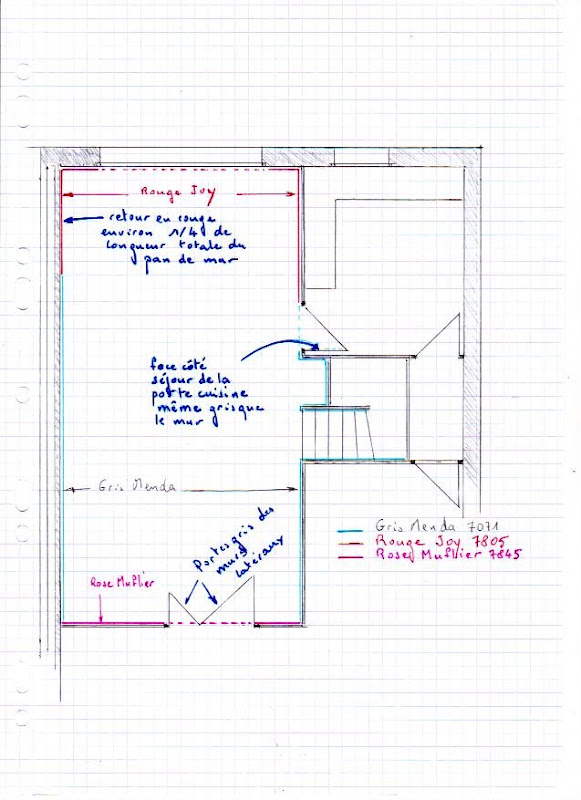 Rouge Joy
retour en rouge
environ 1/4 de
longueur totale du
pan de mur
face côté
séjour de la
porte cuisine
même gris que
le mur
Gris Menda
Portes gris des
murs
latéraux
Rose Muflier
Gris Menda 7071
Rouge Joy 7805
Rose Muflier 7845